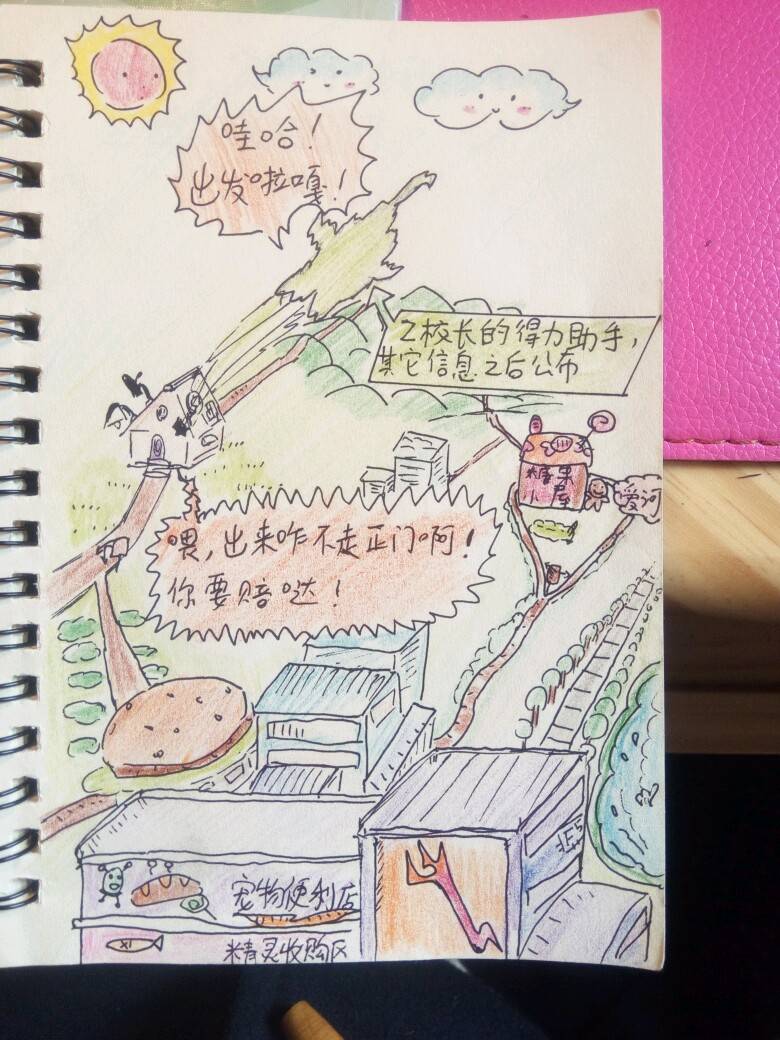 哇哈！
出发啦嘎！
Z校长的得力助手，
其它信息之后公布
糖果
小屋
爱河
喂，出来咋不走正门啊！
你要赔哒！
宠物便利店
精灵收购区